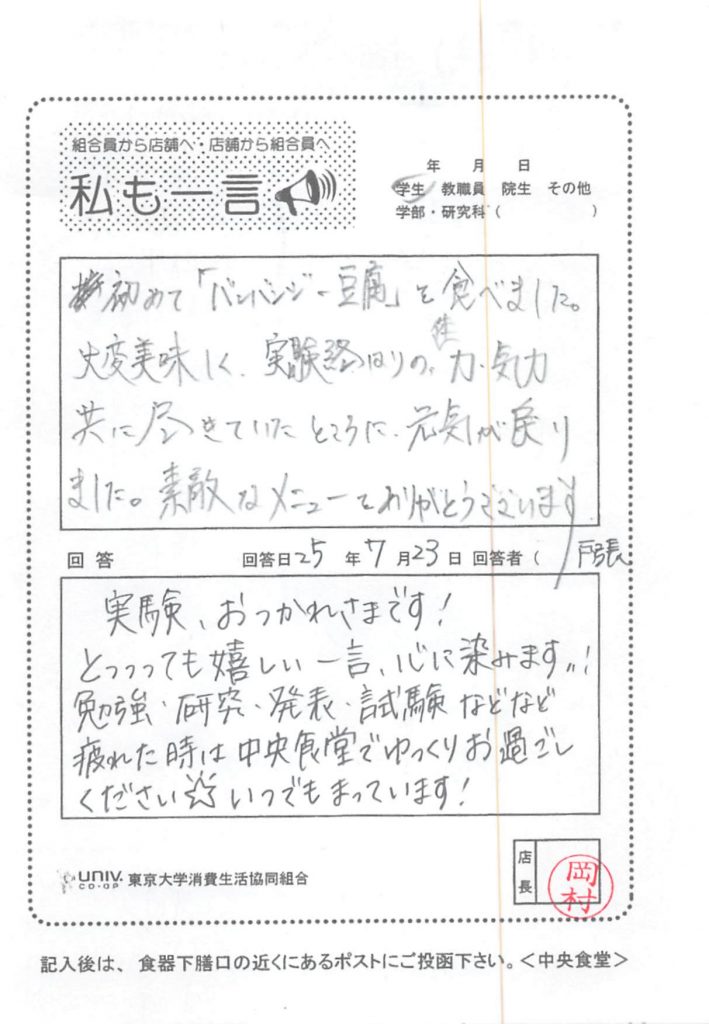 組合員から店舗へ・店舗から組合員へ
私も一言
年 月 日
学生 教職員 院生 その他
学部・研究科(　　　)
初めて「バンバンジー豆腐」を食べました。
大変美味しく、実験終わりの、体力・気力
共に尽きていたところに、元気が戻り
ました。素敵なメニューをありがとうございます
回答 回答日25年7月23日 回答者( 店長
実験、おつかれさまです!
とっっっても嬉しい一言、心に染みます!!
勉強・研究・発表・試験などなど
疲れた時は中央食堂でゆっくりお過ごし
ください☆いつでもまっています!
UNIV. CO-OP 東京大学消費生活協同組合
店長
岡村
記入後は、食器下膳口の近くにあるポストにご投函下さい。<中央食堂>